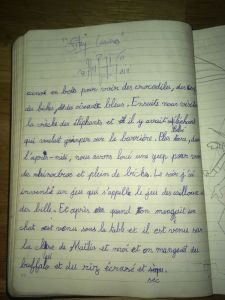 canoë en bato pour voir des crocodiles, des
des biches, et des oiseaux bleus. Ensuite nous
la crèche des éléphants et il y avait éléphant
bébé
qui voulait grimper sur la barrière. Plus tard, dans
l'après-midi, nous avons loué une jeep pour voir
de rhinocéros et plein de biches. Le soir j'ai
inventé un jeu qui s'appelle le jeu des cailloux et
des bills. Et après quand on mangeait un
chat est venu sous la table et il est venus sur
la de Mathis et moi et on mangeait du
buffalo et du riz écrasé et
sec